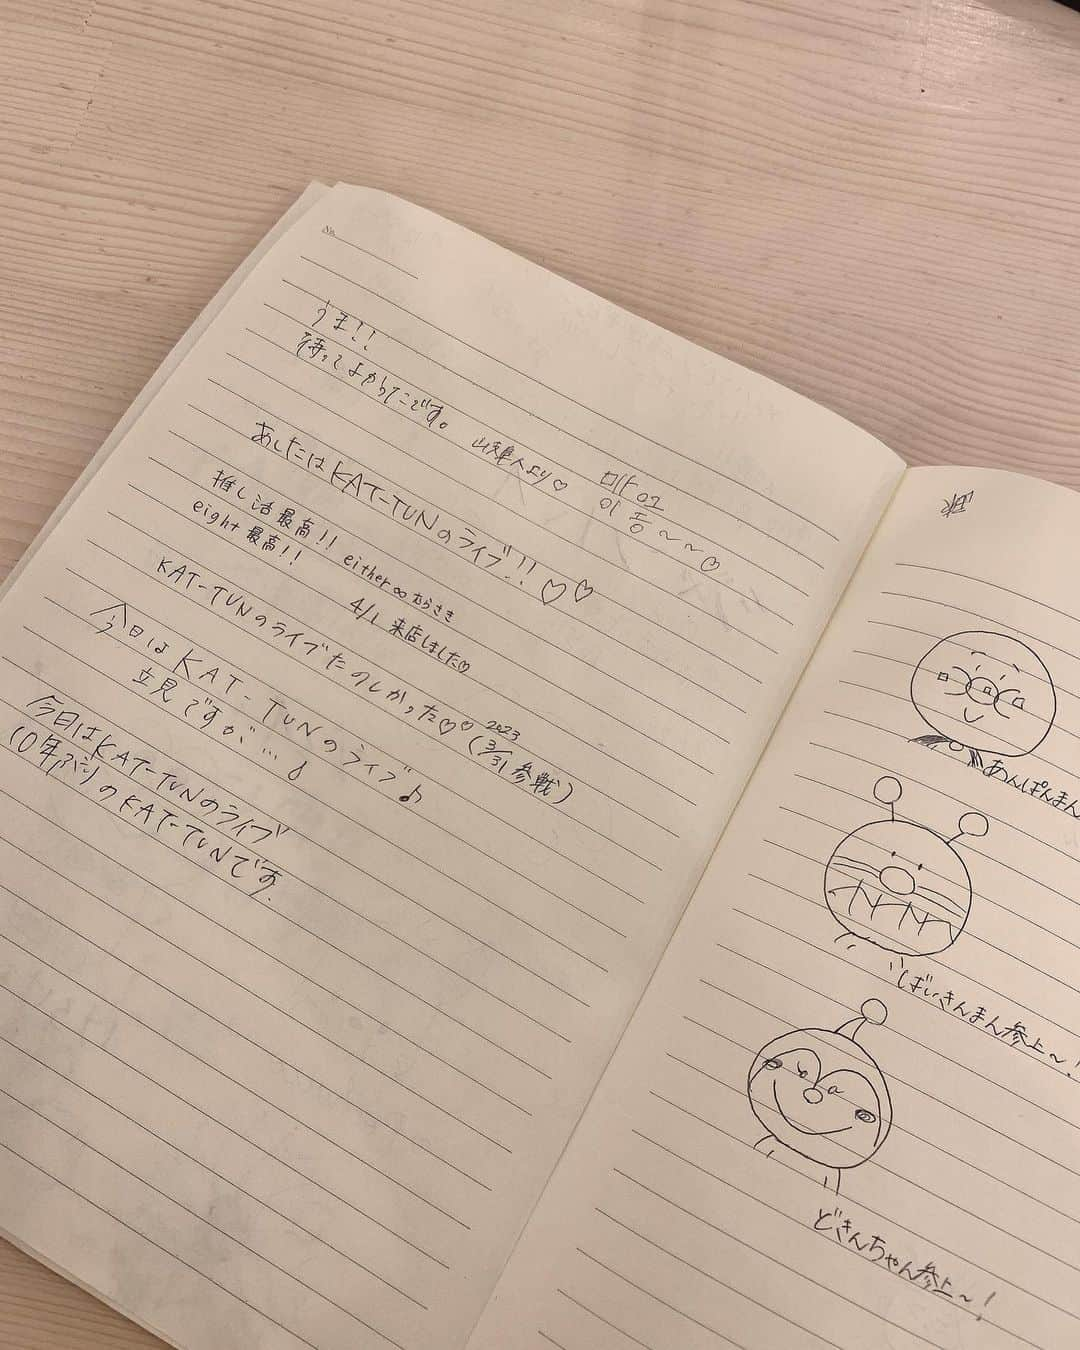 No.
うま!!
待ってよかったです。
より♡
あしたはKAT-TUNのライブ!!♡♡
推し活最高!! either∞むらさき
eight最高!!
4/1 来店しました♡
KAT-TUNのライブたのしかった♡♡(2023 3/31参戦)
今日はKAT-TUNのライブ♪
立見ですが…♪
今日はKAT-TUNのライブ
10年ぶりのKAT-TUNです。
あんぱんまん
ばいきんまん参上〜!
どきんちゃん参上〜!